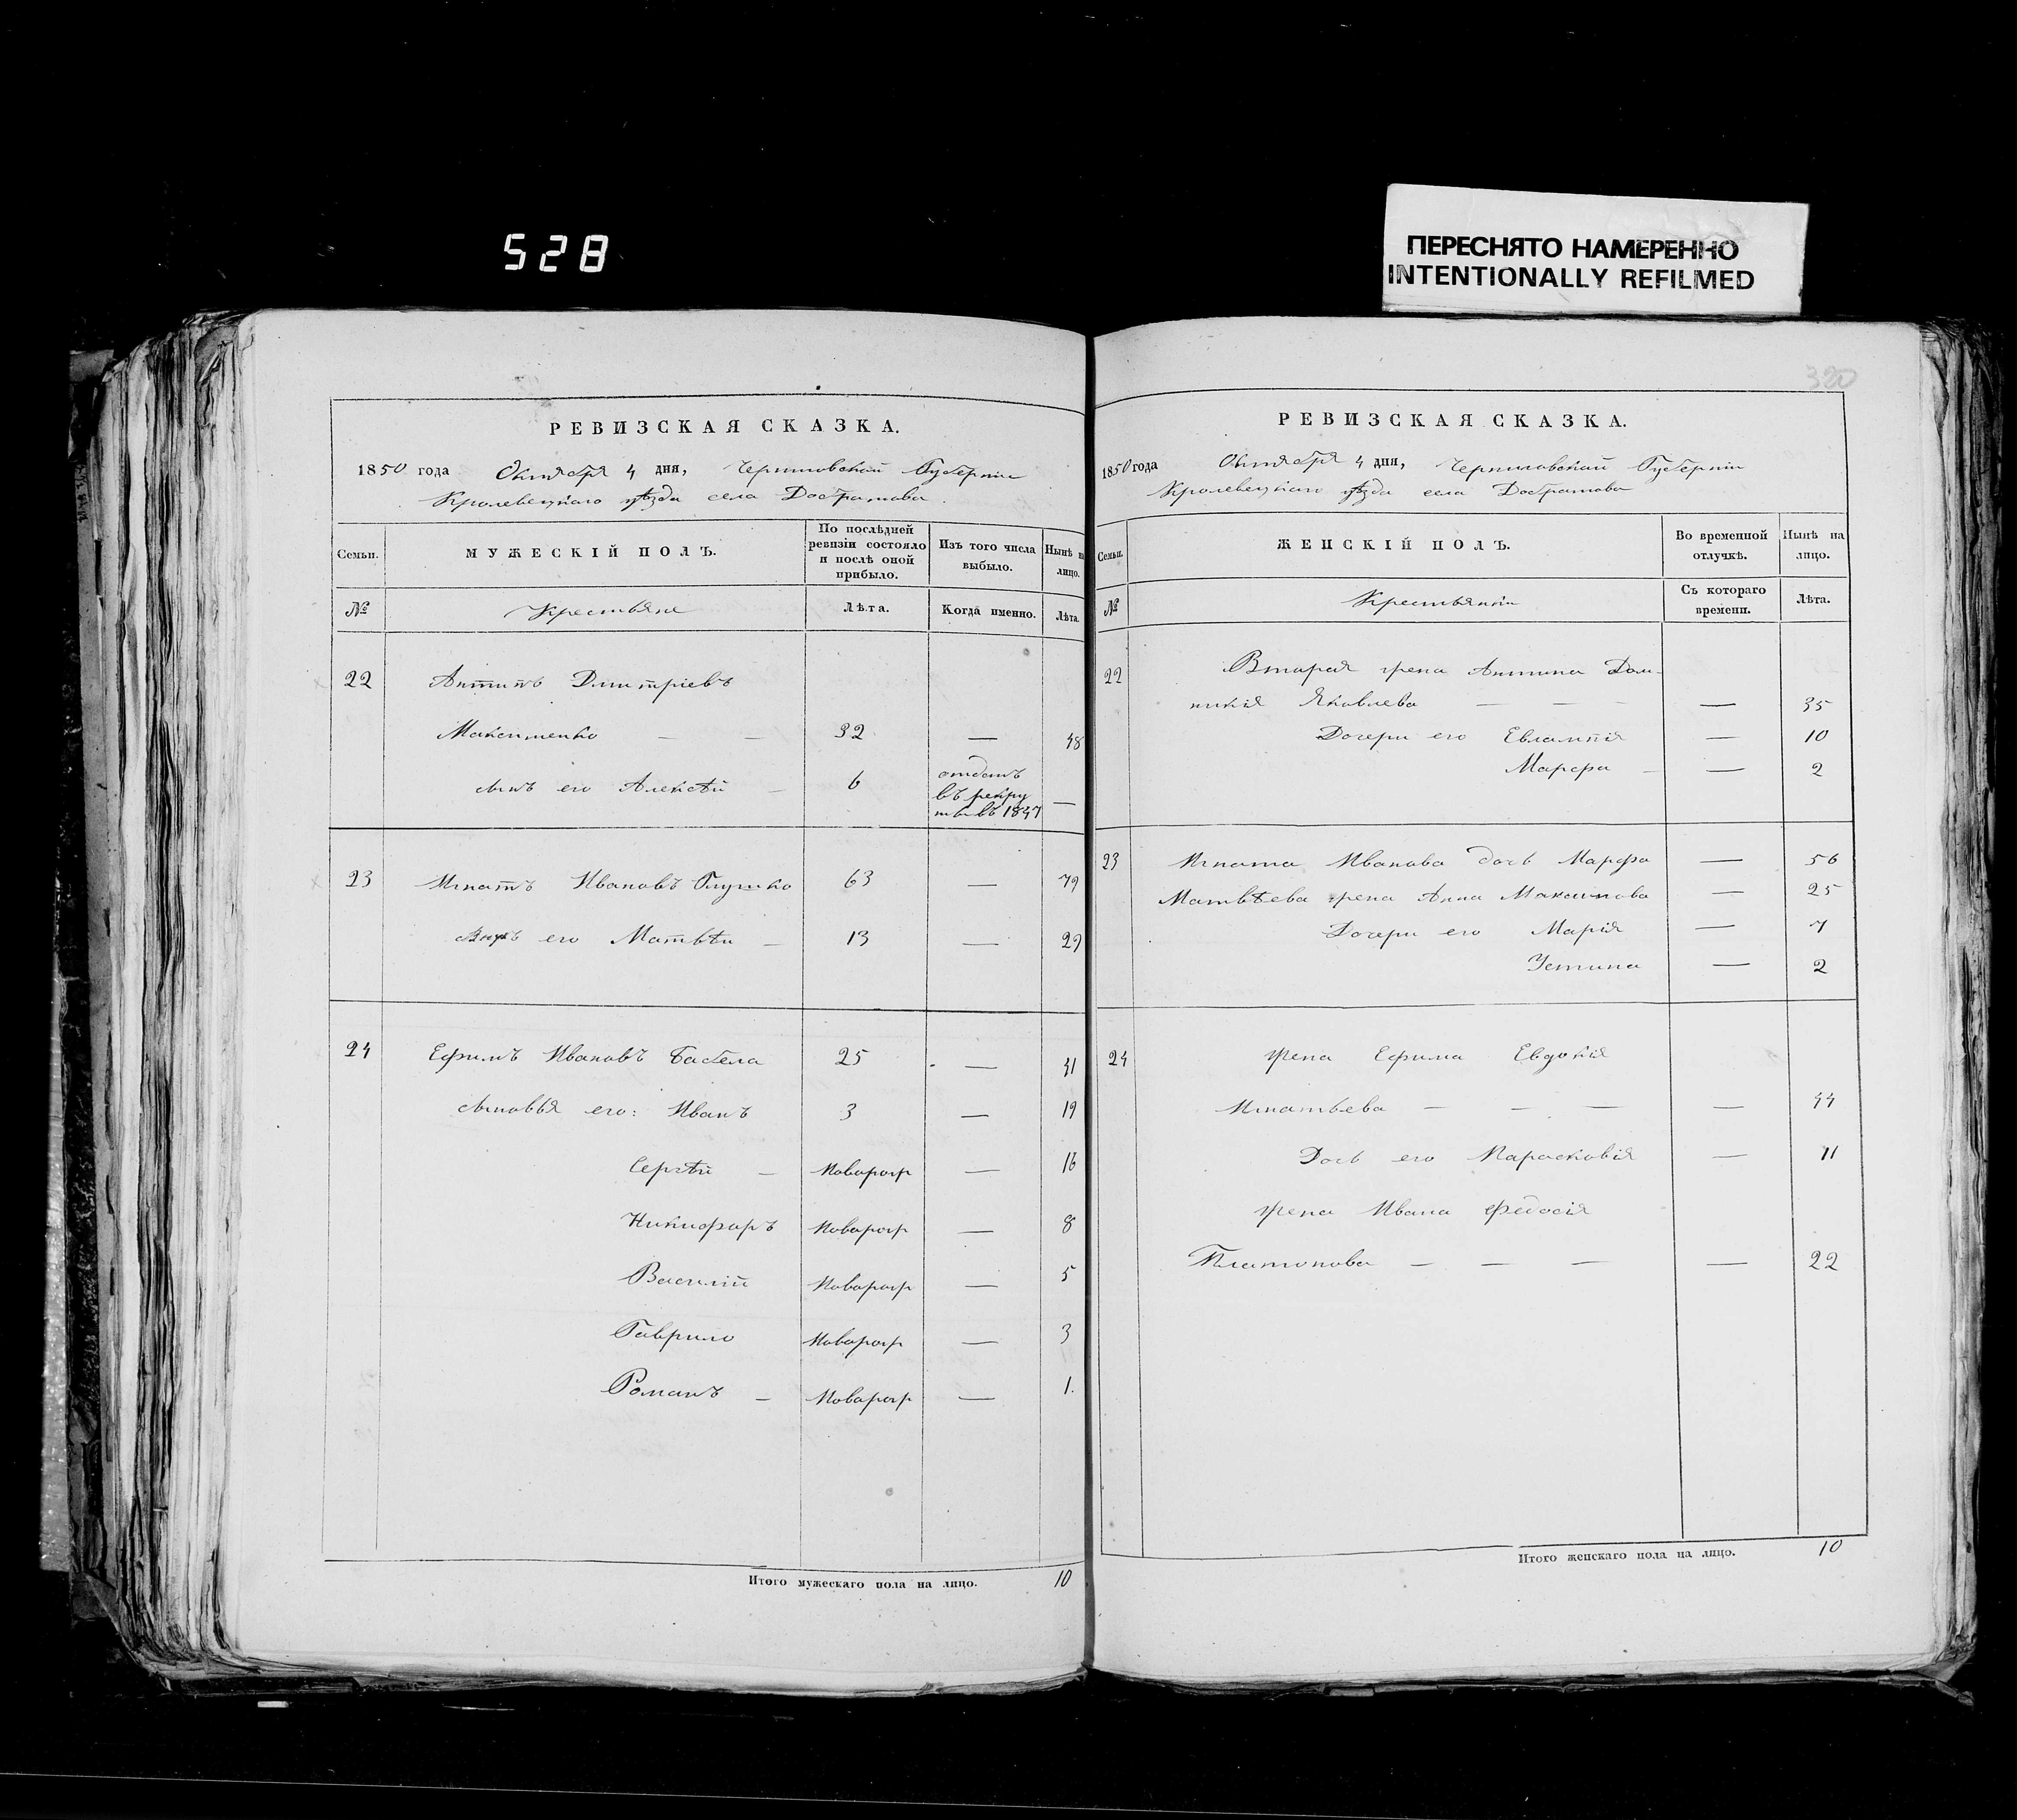 528
ПЕРЕСНЯТО НАМЕРЕННО
INTENTIONALLY REFILMED
РЕВИЗСКАЯ СКАЗКА.
1850 года Октября 4 дня, Черниговской Губернии
Кролевецкаго уѣзда села Добратова
Семьи.
МУЖЕСКІЙ ПОЛЪ.
По послѣдней ревизіи состояло и послѣ оной прибыло.
Изъ того числа выбыло.
Нынѣ на лицо.
№
Крестьяне
Лѣта.
Когда именно.
Лѣта.
22 Антипъ Дмитріевъ
Максименко — — 32 — 48
сынъ его Алексѣй — 6 отданъ въ рекруты въ 1847 —
23 Игнатъ Ивановъ Глушко 63 — 79
Внукъ его Матвѣй — 13 — 29
24 Ефимъ Ивановъ Бабела 25 — 41
сыновья его: Иванъ 3 — 19
Сергѣй — Новорож — 16
Никифоръ Новорож — 8
Василій Новорож — 5
Гаврило Новорож — 3
Романъ — Новорож — 1.
Итого мужескаго пола на лицо. 10
320
РЕВИЗСКАЯ СКАЗКА.
1850 года Октября 4 дня, Черниговской Губерніи
Кролевецкаго уѣзда села Добратова
Семьи.
ЖЕНСКІЙ ПОЛЪ.
Во временной отлучкѣ.
Нынѣ на лицо.
№
Крестьянки
Съ котораго времени.
Лѣта.
22 Вторая жена Антипа Дом-
никія Яковлева — — — — 35
Дочери его Евлампія — 10
Марфа — — 2
23 Игната Иванова дочь Марфа — 56
Матвѣева жена Анна Максимова — 25
Дочери его Марія — 7
Устина — 2
24 жена Ефима Евдокія
Игнатьева — — — — 44
Дочь его Парасковія — 11
жена Ивана Федосія
Платонова — — — — 22
Итого женскаго пола на лицо. 10